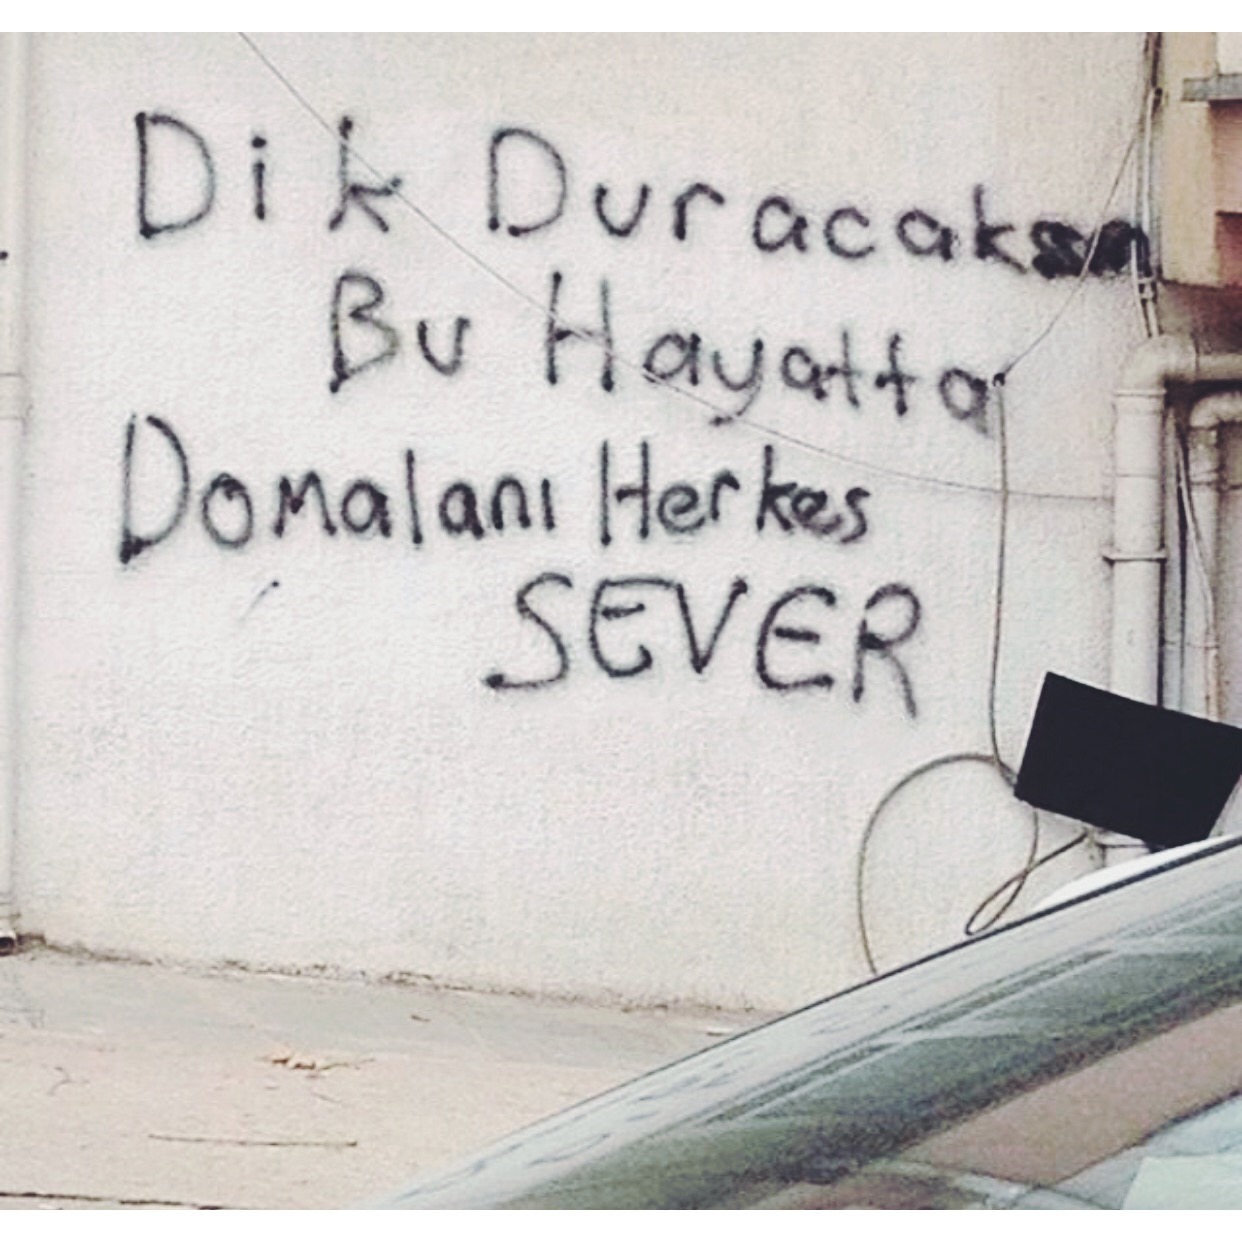 Dik Duracaksan
Bu Hayatta
Domalanı Herkes
SEVER